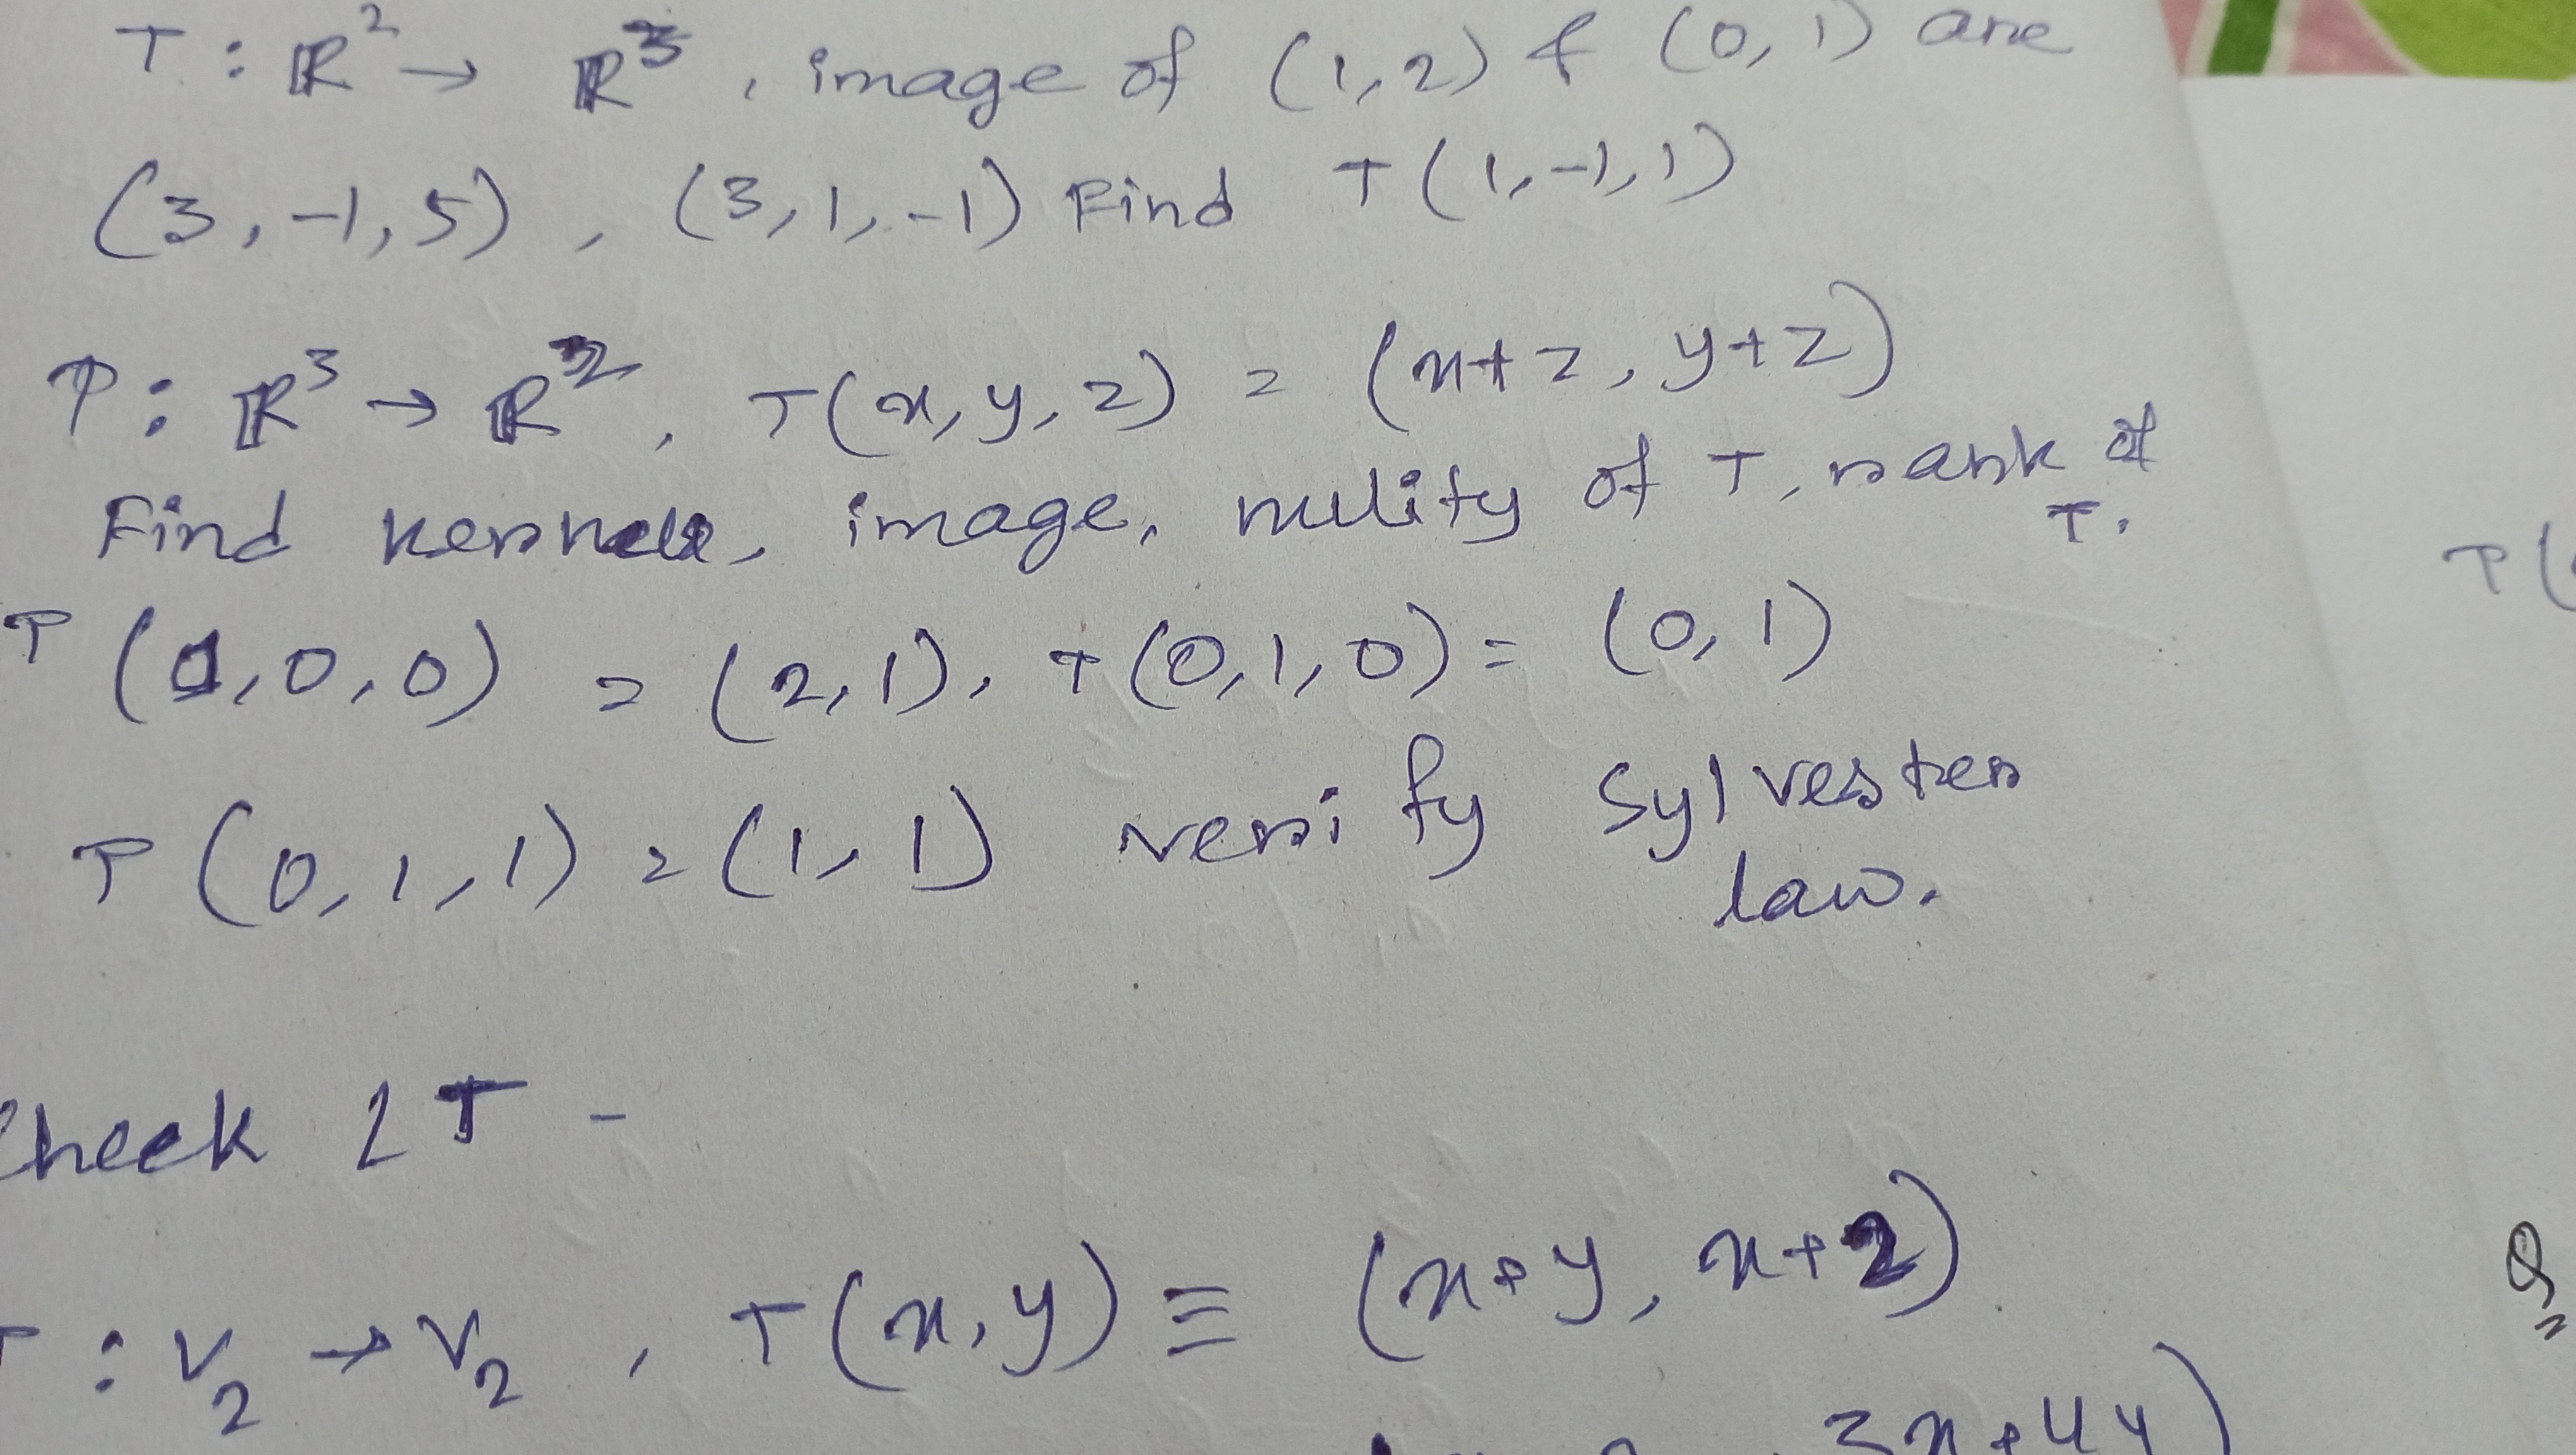 T : R² → R³, image of (1,2) & (0,1) are
(3,-1,5), (3,1,-1) Find T(1,-1,1)
T : R³ → R², T(x,y,z) = (x+z, y+z)
Find kernel, image, nulity of T, rank of T.
T(1,0,0) = (2,1), T(0,1,0) = (0,1)
T(0,1,1) = (1,1) verify Sylvester
law.
Check LT -
T : V₂ → V₂, T(x,y) ≡ (x+y, x+2)
3x+4y)
T(
Q